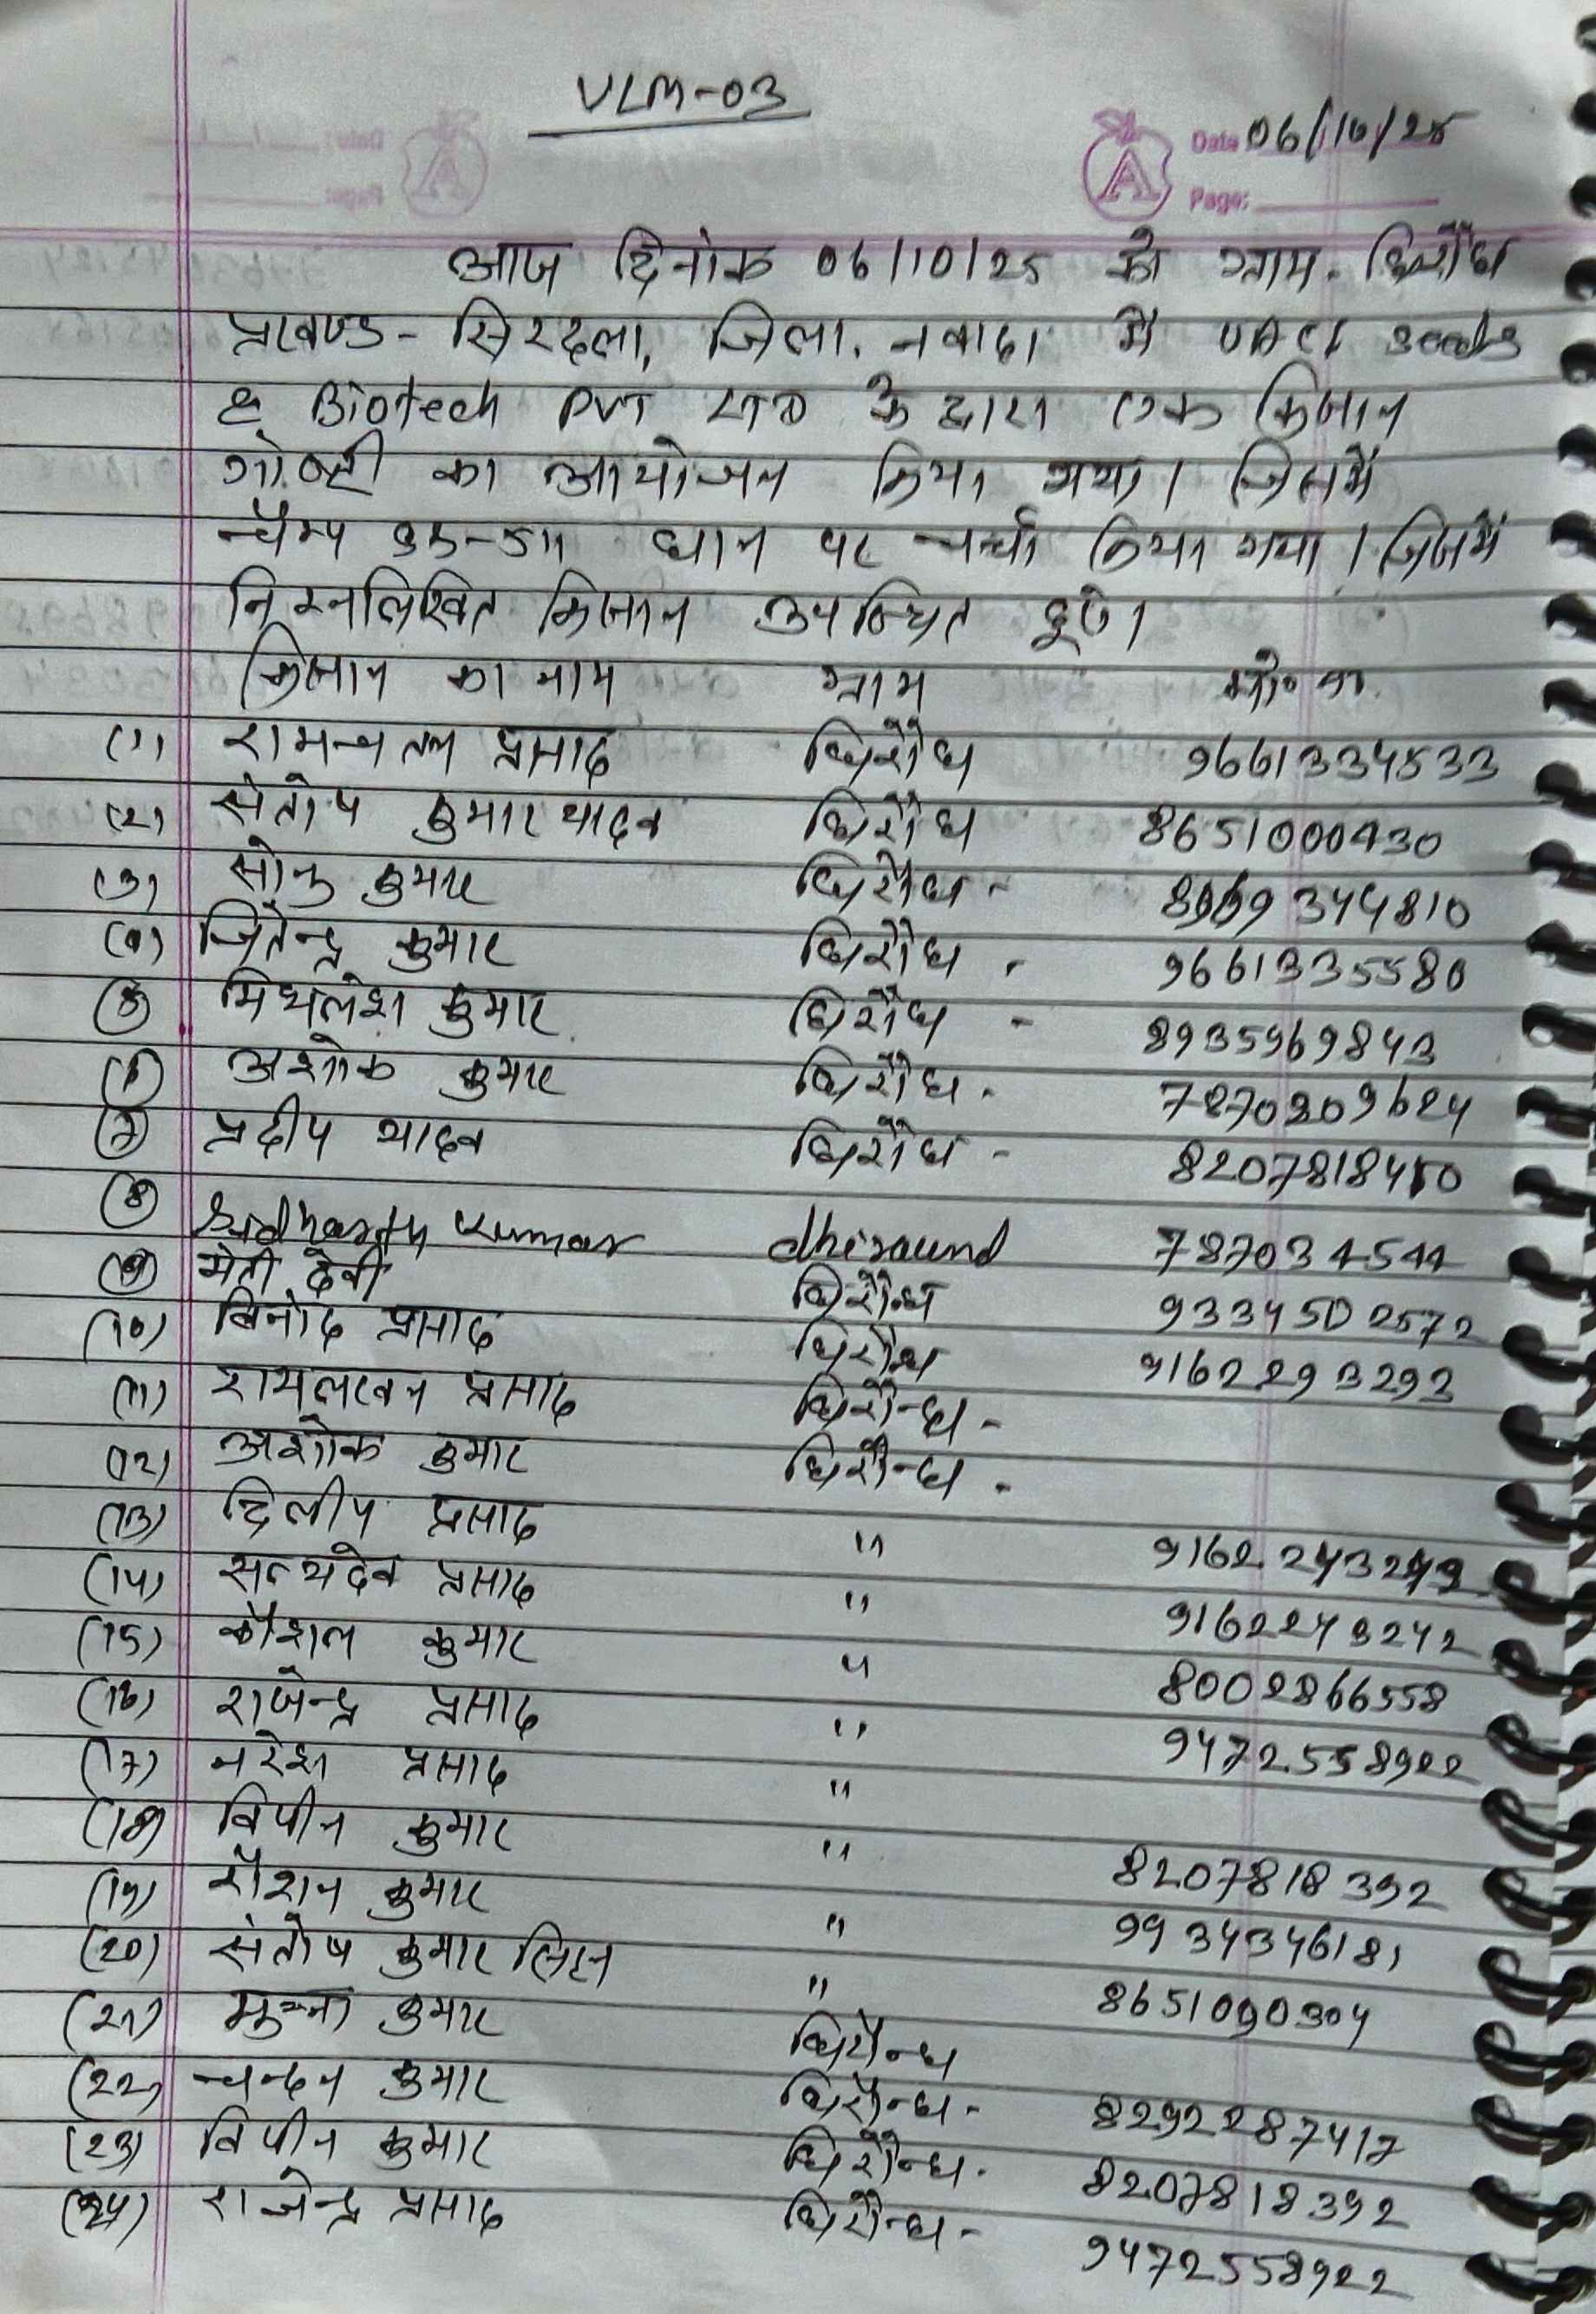 VLM-03
Date 06/10/25
Page:
आज दिनांक 06/10/25 को ग्राम. धिरौंध
प्रखण्ड - सिरदला, जिला. नवादा में seeds
& Biotech PVT LTD के द्वारा एक किसान
गोष्ठी का आयोजन किया गया। जिसमें
चैम्प धान पर चर्चा किया गया। जिसमें
निम्नलिखित किसान उपस्थित हुए।
किसान का नाम ग्राम मो० न.
(1) रामचतन प्रसाद धिरौंध 9661334533
(2) संतोष कुमार यादव धिरौंध 8651000430
(3) सोनु कुमार धिरौंध - 344810
(4) जितेन्द्र कुमार धिरौंध - 9661335580
(5) मिथलेश कुमार धिरौंध - 8935969843
(6) अशोक कुमार धिरौंध - 7870209624
(7) प्रदीप यादव धिरौंध - 8207818450
(8) Sidharth Kumar dhiraund 787034544
(9) मेती देवी धिरौन्ध 9334502572
(10) विनोद प्रसाद धिरौन्ध 9162293293
(11) रामलखन प्रसाद धिरौन्ध -
(12) अशोक कुमार धिरौन्ध -
(13) दिलीप प्रसाद " 9162243243
(14) सत्यदेव प्रसाद " 9162243242
(15) कौशल कुमार " 8002866558
(16) राजेन्द्र प्रसाद " 9472558922
(17) नरेश प्रसाद "
(18) विपीन कुमार " 8207818392
(19) रौशन कुमार " 9934346181
(20) संतोष कुमार सिंह " 8651090304
(21) मुन्ना कुमार धिरौन्ध
(22) चन्दन कुमार धिरौन्ध - 8292287417
(23) विपीन कुमार धिरौन्ध - 8207818392
(24) राजेन्द्र प्रसाद धिरौन्ध - 9472558922